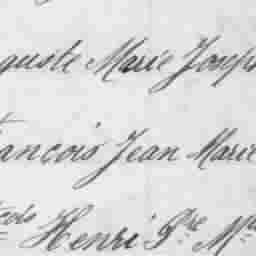 guste Marie Joseph
ançois Jean Marie
Henri P.re M